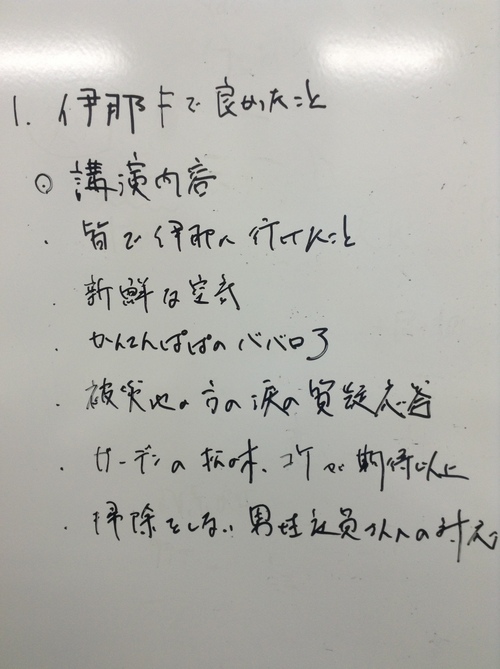 1. 伊那市で良かったこと
◎ 講演内容
・皆で伊那に行けたこと
・新鮮な空気
・かんてんぱぱのババロア
・被災地の方の涙の質疑応答
・ガーデンの 、コケが期待以上
・掃除をしない男性社員さんへの対応